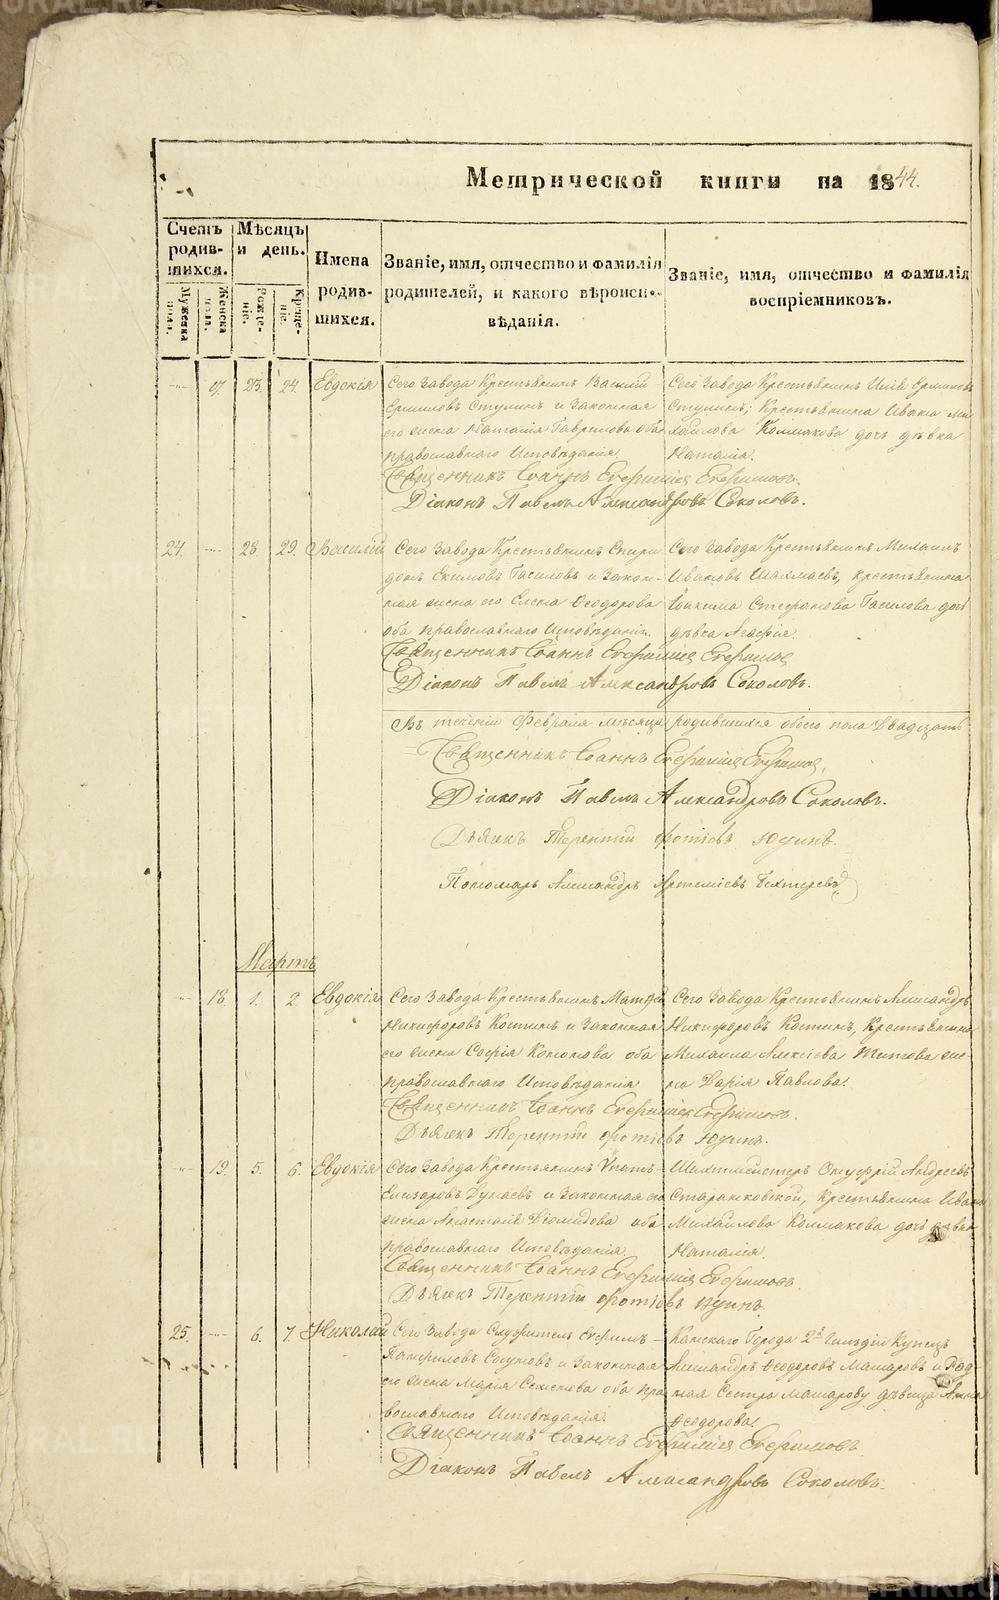 Метрической книги на 1844.
Счетъ родив-шихся.
Мѣсяцъ и день.
Имена родив-шихся.
Званіе, имя, отчество и фамилія родителей, и какого вѣроисп-вѣданія.
Званіе, имя, отчество и фамилія воспріемниковъ.
Мужеска пола.
Женска пола.
Рожде-ніе.
Креще-ніе.
23. 24 Евдокія
Сего Завода Крестьянинъ Василій
Стулинъ и Законная
его жена Наталія Гавремова оба
православнаго Исповѣданія.
Сего Завода Крестьянинъ
Стулинъ; Крестьянина Ивана Ми-
хайлова Колмакова дочь дѣвка
Наталія.
Священникъ Іоаннъ Евфиміевъ
Діаконъ Павелъ Александровъ Соколовъ.
24. 28. 29. Василій
Сего Завода Крестьянинъ Спири-
донъ Екимовъ Гасиловъ и Закон-
ная жена его Елена Ѳеодорова
оба православнаго Исповѣданія.
Сего Завода Крестьянинъ Михаилъ
Ивановъ Шахмаевъ, крестьянина
Іоакима Стефанова Гасилова дочь
дѣвка Агафія.
Священникъ Іоаннъ Евфиміевъ
Діаконъ Павелъ Александровъ Соколовъ.
Въ теченіи Февраля мѣсяца родившихся обоего пола Двадцать
Священникъ Іоаннъ Евфиміевъ
Діаконъ Павелъ Александровъ Соколовъ.
Дьячекъ Терентій Фотіевъ Юдинъ.
Пономарь Александръ Артеміевъ Бехтеревъ
Мартъ
18. 1. 2 Евдокія
Сего Завода Крестьянинъ Матфей
Никифоровъ Костинъ и Законная
его жена Софія Кононова оба
православнаго Исповѣданія
Сего Завода Крестьянинъ Александръ
Никифоровъ Костинъ, Крестьянина
Михаила Алексіева Титова же-
на Дарія Павлова.
Священникъ Іоаннъ Евфиміевъ
Дьячекъ Терентій Фотіевъ Юдинъ.
19. 5. 6. Евдокія
Сего Завода Крестьянинъ Игнат-
Елизаровъ Дунаевъ и Законная его
жена Анастасія Діомидова оба
православнаго Исповѣданія.
Шихтмейстеръ Онуфрій Андреевъ
Старанковской, Крестьянина Ивана
Михайлова Колмакова дочь дѣвка
Наталія.
Священникъ Іоаннъ Евфиміевъ
Дьячекъ Терентій Фотіевъ Юдинъ.
25. 6. 7. Николай
Сего Завода Служитель Ефимъ
Памфиловъ и Законная
его жена Марія Семенова оба пра-
вославнаго Исповѣданія.
Города 2й Гильдіи Купецъ
Александръ Ѳеодоровъ Машаровъ и Род-
ная Сестра Машарову дѣвица Анна
Ѳеодорова.
Священникъ Іоаннъ Евфиміевъ
Діаконъ Павелъ Александровъ Соколовъ.
METRIKI.GASO-URAL.RU